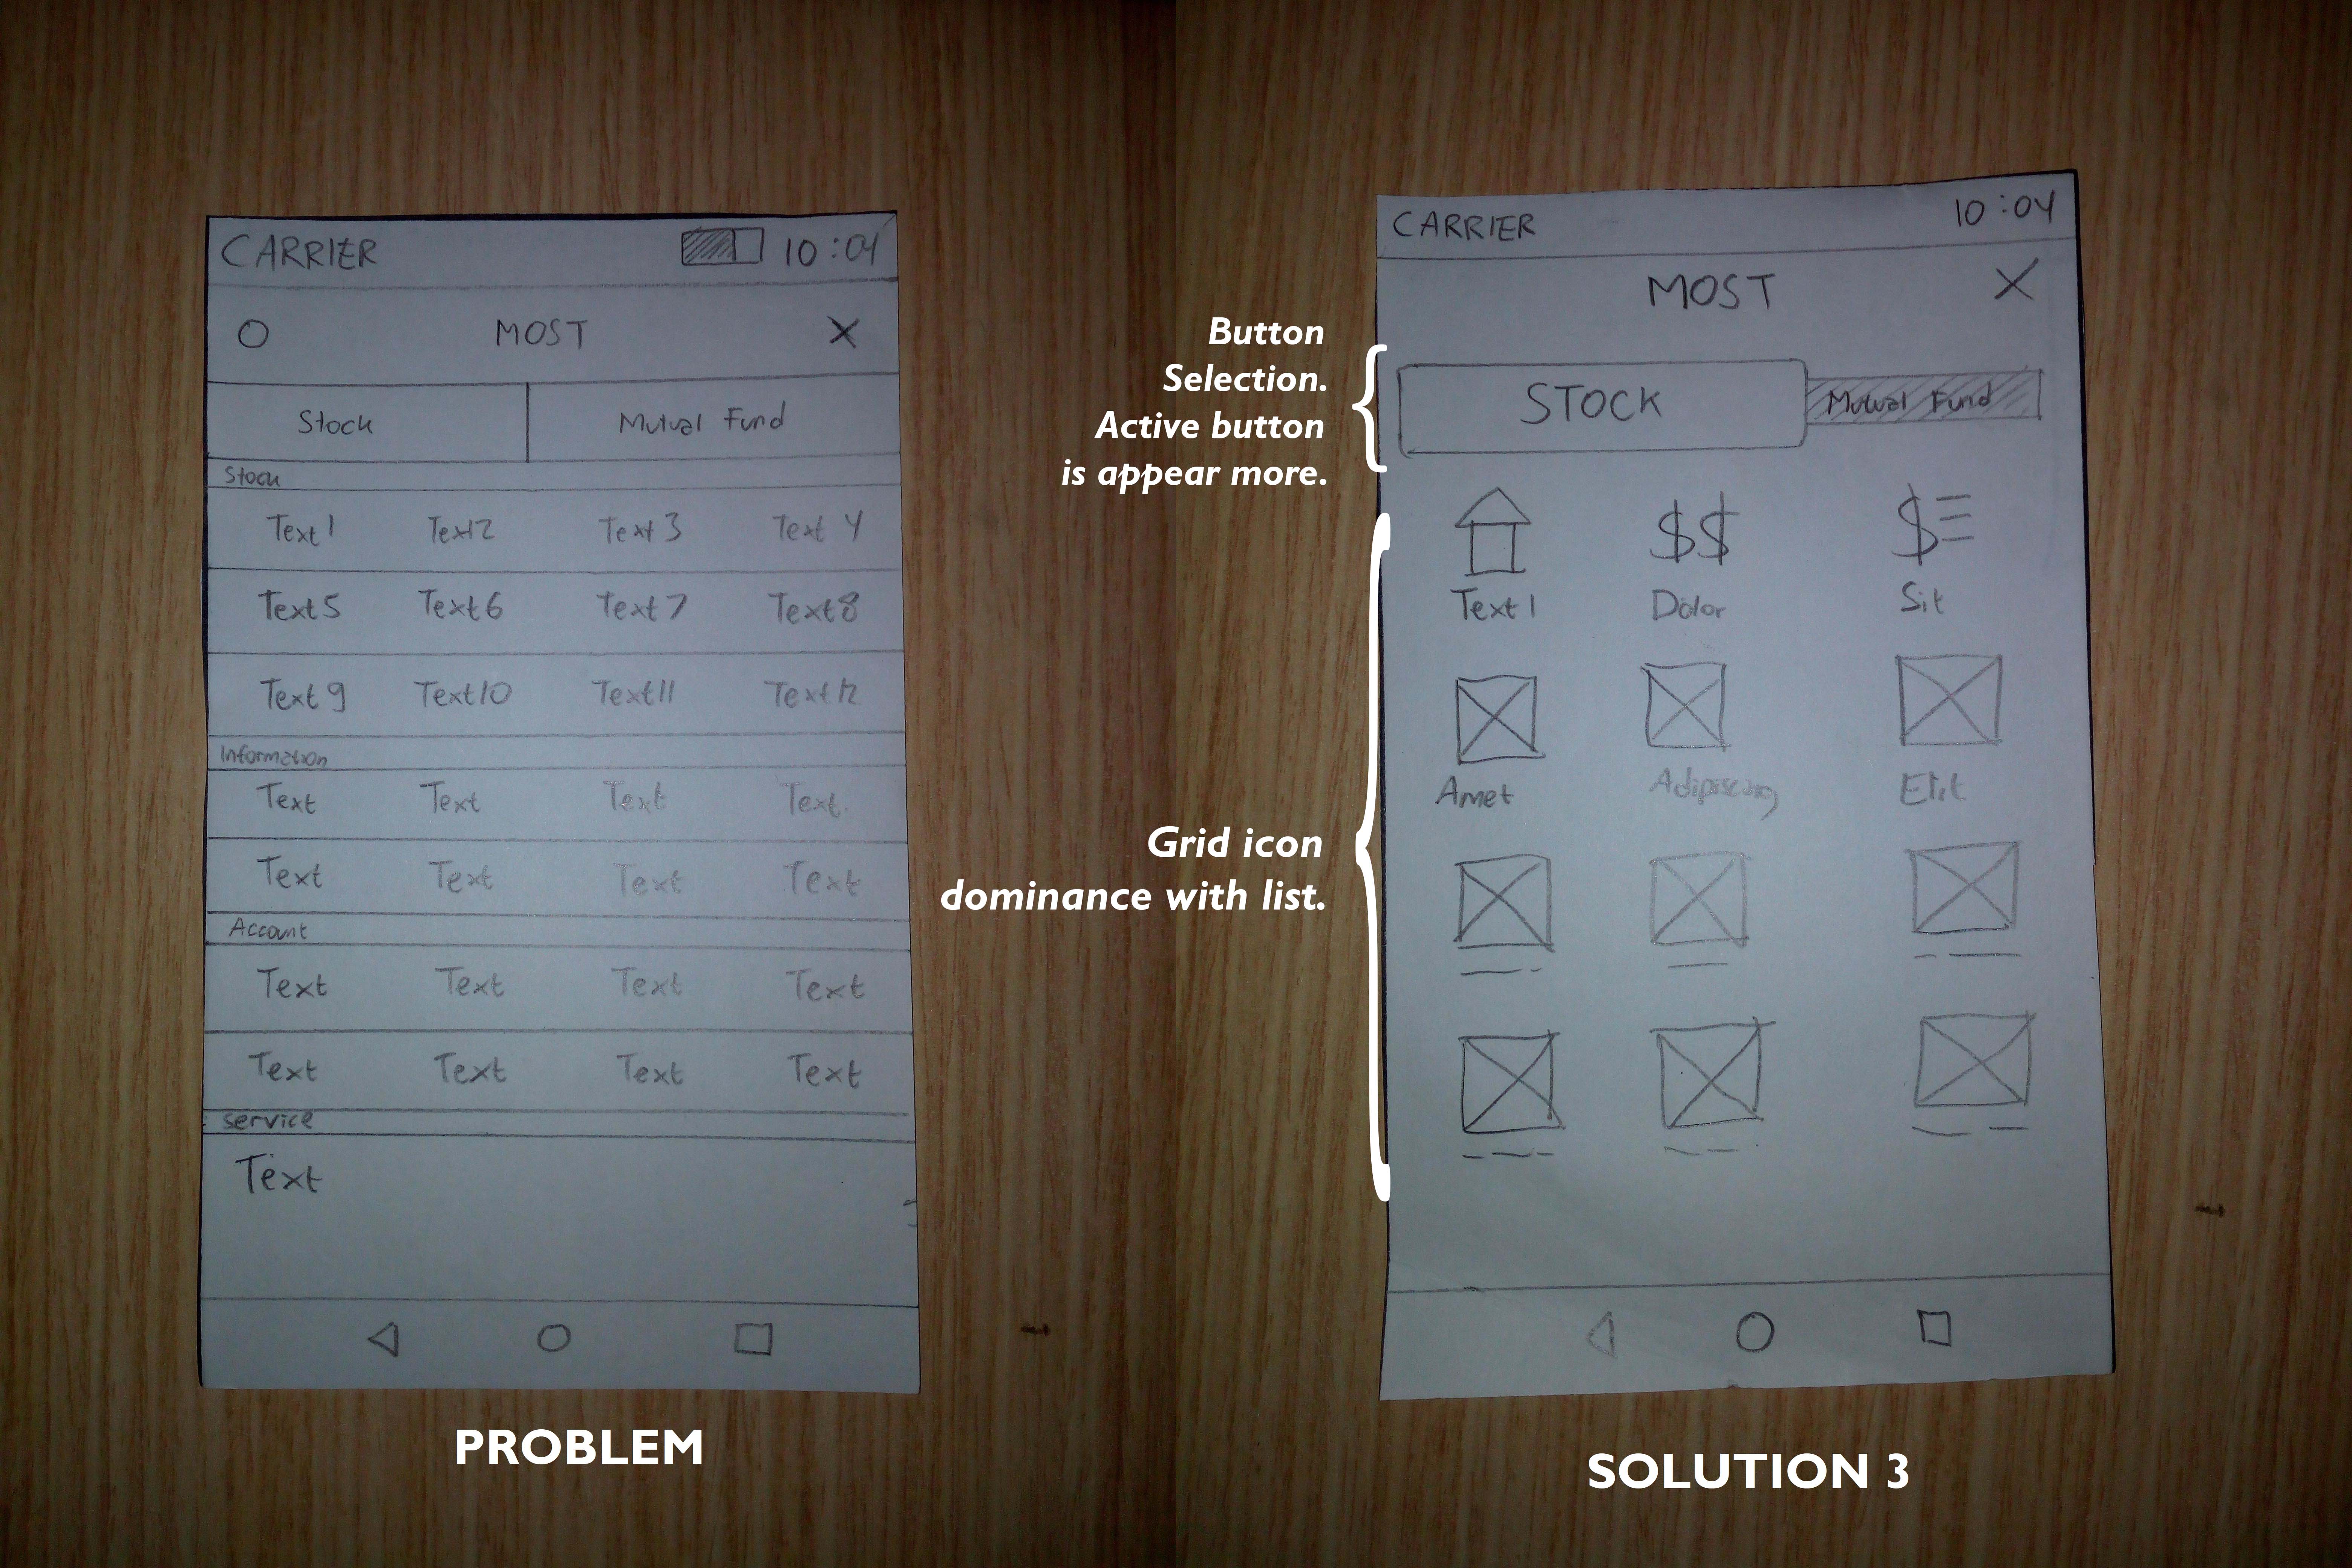 CARRIER 10:04
MOST X
Stock Mutual Fund
Stock
Text1 Text2 Text3 Text 4
Text5 Text6 Text7 Text8
Text9 Text10 Text11 Text12
Information
Text Text Text Text
Text Text Text Text
Account
Text Text Text Text
Text Text Text Text
service
Text
PROBLEM
Button
Selection.
Active button
is appear more.
Grid icon
dominance with list.
CARRIER 10:04
MOST X
STOCK Mutual Fund
$$ $
Text1 Dolor Sit
Amet Adipiscing Elit
SOLUTION 3